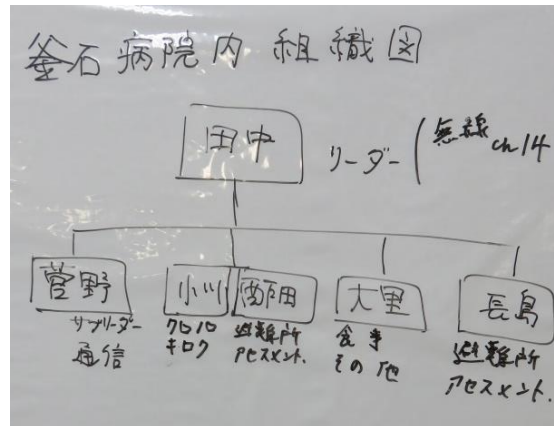 釜石病院内組織図
田中
リーダー
無線 ch14
菅野
サブリーダー
通信
小川
クロノロ
キロク
田
避難所
アセスメント.
大里
食事
その他
長島
避難所
アセスメント.